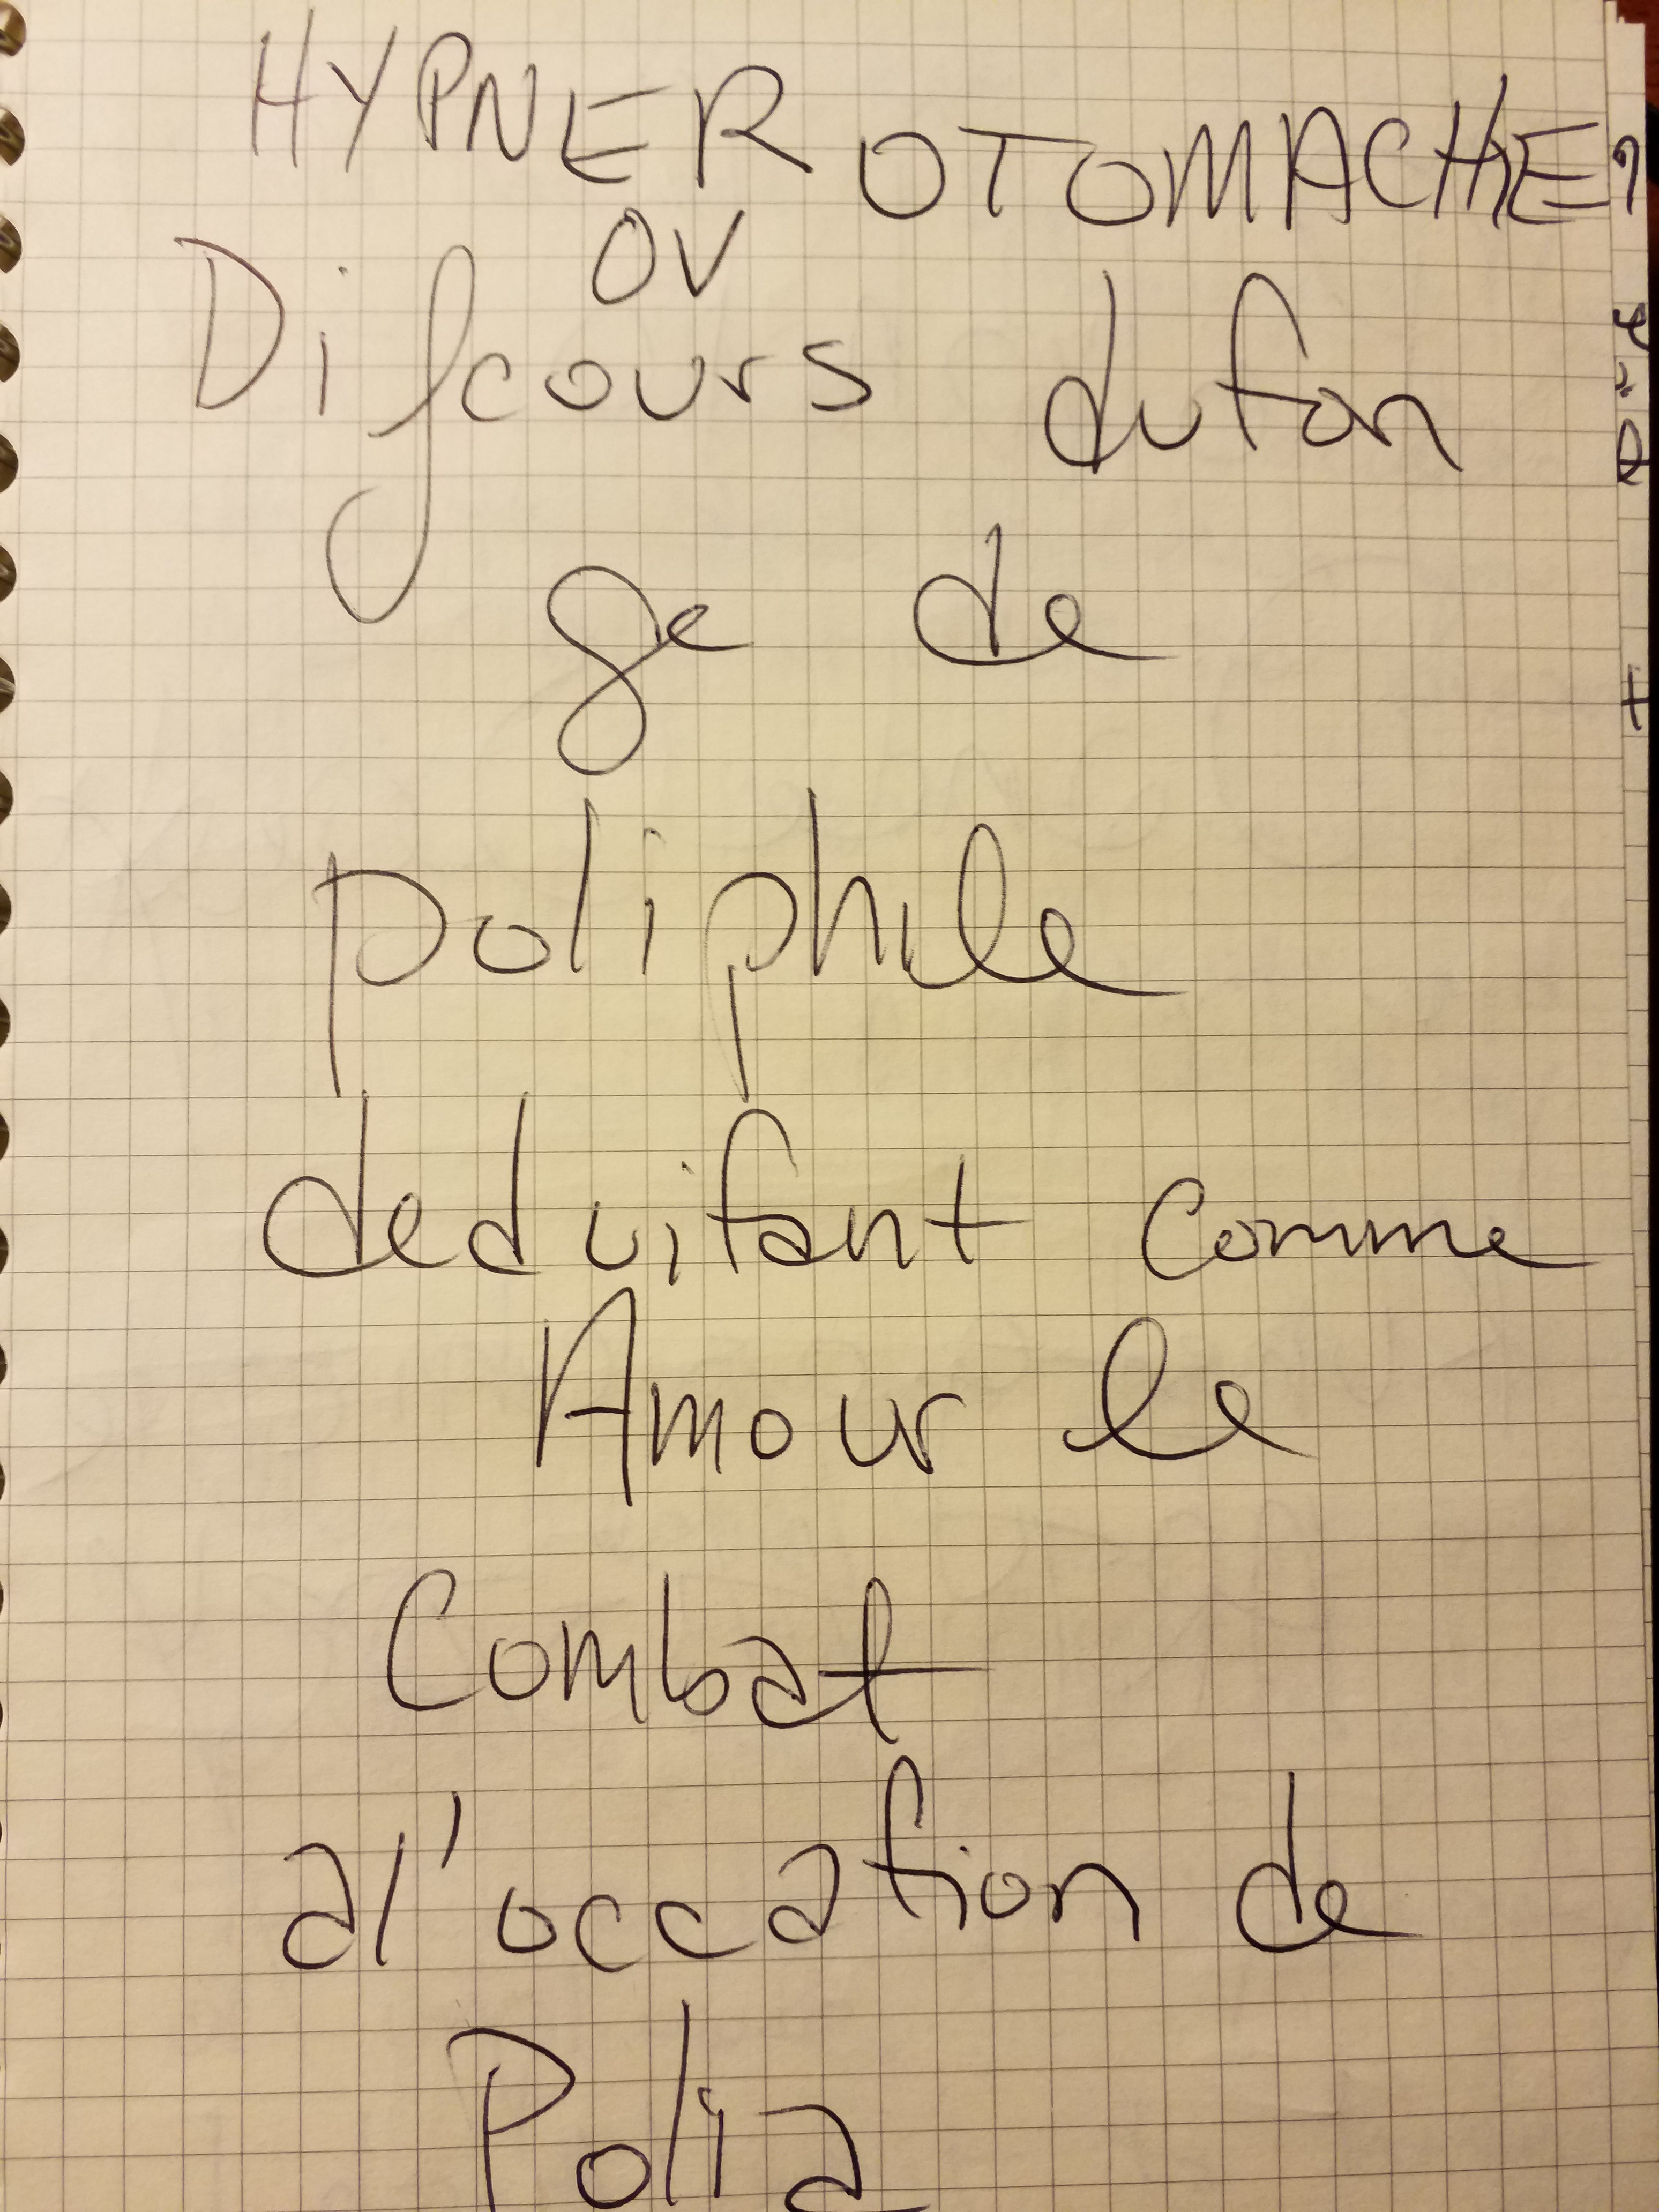 HYPNER OTOMACHIE
OV
Diſcours duſon
ge de
poliphile
deduiſant comme
Amour le
Combat
al'occaſion de
Polia